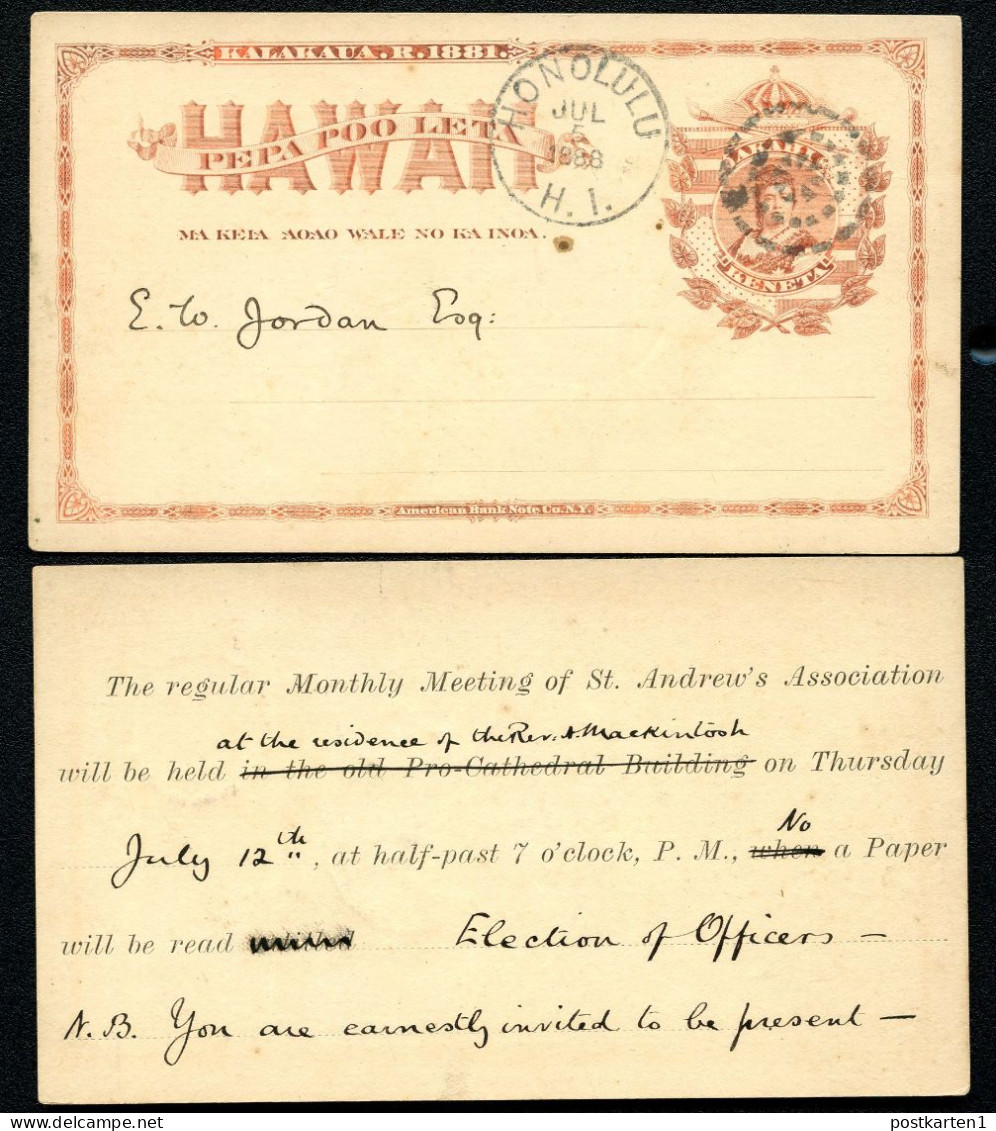 KALAKAUA.R.1881.
HAWAII
PEPA POO LETA
HONOLULU
JUL
5
1888
H. I.
AKAHI
KENETA
MA KEIA AOAO WALE NO KA INOA.
E. W. Jordan Esq:
American Bank Note Co. N.Y.
The regular Monthly Meeting of St. Andrew's Association
at the residence of the Rev. A. Mackintosh
will be held in the old Pro-Cathedral Building on Thursday
No
July 12th, at half-past 7 o'clock, P. M., when a Paper
will be read Election of Officers —
N.B. You are earnestly invited to be present —
postkarten1